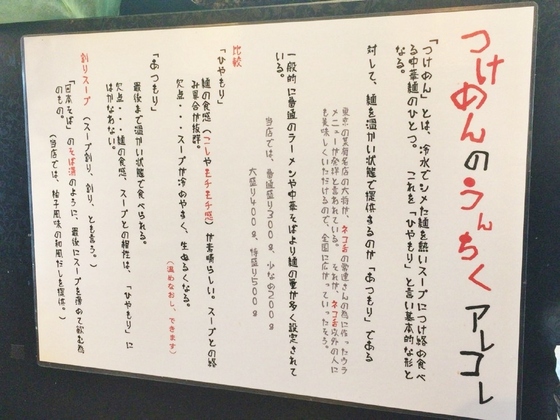 つけめんのうんちくアレコレ
「つけめん」とは、冷水でシメた麺を熱いスープにつけ絡め食べ
る中華麺のひとつ。これを「ひやもり」と言い基本的な形と
なる。
対して、麺を温かい状態で提供するのが「あつもり」である
東京の某有名店の大将が、ネコ舌の常連さんの為に作ったウラ
メニューが発祥と言われている。それが、ネコ舌以外の人に
も美味しくいただけるので、全国に広がっていったそう。
一般的に普通のラーメンや中華そばより麺の量が多く設定されて
いる。
当店では、普通盛り300g、少なめ200g
大盛り400g、特盛り500g
比較
「ひやもり」
麺の食感(コシやモチモチ感)が素晴らしい。スープとの絡
み具合が抜群。
欠点・・・スープが冷めやすく、生ぬるくなる。
(温めなおし、できます)
「あつもり」
最後まで温かい状態で食べられる。
欠点・・・麺の食感、スープとの相性は、「ひやもり」に
はかなわない。
割りスープ(スープ割り、割り、とも言う。)
「日本そば」のそば湯のように、最後にスープを薄めて飲む為
のもの。
(当店では、柚子風味の和風だしを提供。)